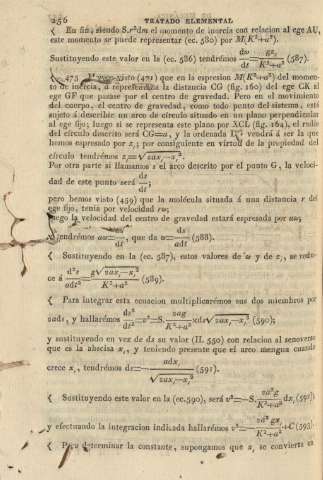 256 TRATADO ELEMENTAL
En fin, siendo S.r²dm el momento de inercia con relacion al ege AU,
este momento se puede representar (ec. 580) por M(K²+a²).
Sustituyendo este valor en la (ec. 586) tendrémos dω/dt = gz,/(K²+a²) (587).
473 visto (471) que en la espresion M(K²+a²) del momen-
to de inercia, a representaba la distancia CG (fig. 160) del ege CK al
ege GF que pasase por el centro de gravedad. Pero en el movimiento
del cuerpo, el centro de gravedad, como todo punto del sistema, está
sujeto á describir un arco de círculo situado en un plano perpendicular
al ege fijo; luego si se representa este plano por XCL (fig. 164), el radio
del círculo descrito será CG=a, y la ordenada vendrá á ser la que
hemos espresado por z,; por consiguiente en virtud de la propiedad del
círculo tendrémos z,=√(2ax,—x,²).
Por otra parte si llamamos s el arco descrito por el punto G, la veloci-
dad de este punto será ds/dt;
pero hemos visto (459) que la molécula situada á una distancia r del
ege fijo, tenia por velocidad rω;
luego la velocidad del centro de gravedad estará espresada por aω;
tendrémos aω=ds/dt, que da ω=ds/adt (588).
Sustituyendo en la (ec. 587), estos valores de ω y de z,, se redu-
ce á d²s/adt² = g√(2ax,—x,²)/(K²+a²) (589).
Para integrar esta ecuacion multiplicarémos sus dos miembros por
2ads, y hallarémos ds²/dt²=v²=S. 2ag/(K²+a²) ×ds√(2ax,—x,²) (590);
y sustituyendo en vez de ds su valor (II. 550) con relacion al senoverso
que es la abscisa x,, y teniendo presente que el arco mengua cuando
crece x, tendrémos ds=—adx,/√(2ax,—x,²) (591).
Sustituyendo este valor en la (ec.590), será v²=—S. 2a²g/(K²+a²) dx, (592)
y efectuando la integracion indicada hallarémos v²=—2a²gx,/(K²+a²)+C (593)
Para determinar la constante, supongamos que x, se convierte en